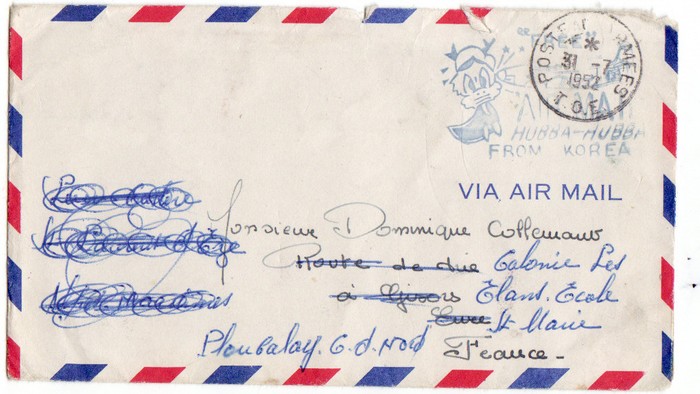 "FREE"
AIR MAIL
HUBBA-HUBBA
FROM KOREA
POSTE AUX ARMEES
*
31 -7
1952
T.O.E.
VIA AIR MAIL
Monsieur Dominique Collemant
Route de Colonie Les
à Gisors Elans. Ecole
Eure St Marie
Ploubalay. C. d. Nord France -